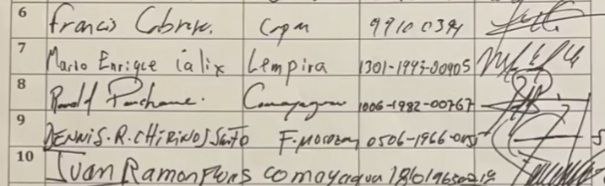 6 Francis Cabrera. Copan 9910 0394
7 Mario Enrique ialix Lempira 1301-1993-00905
8 Ronald Comayagua 1006-1982-00767
9 DENNIS.R.CHIRINOS F.morazan 0506-1966-
10 Juan Ramon Flores comayagua